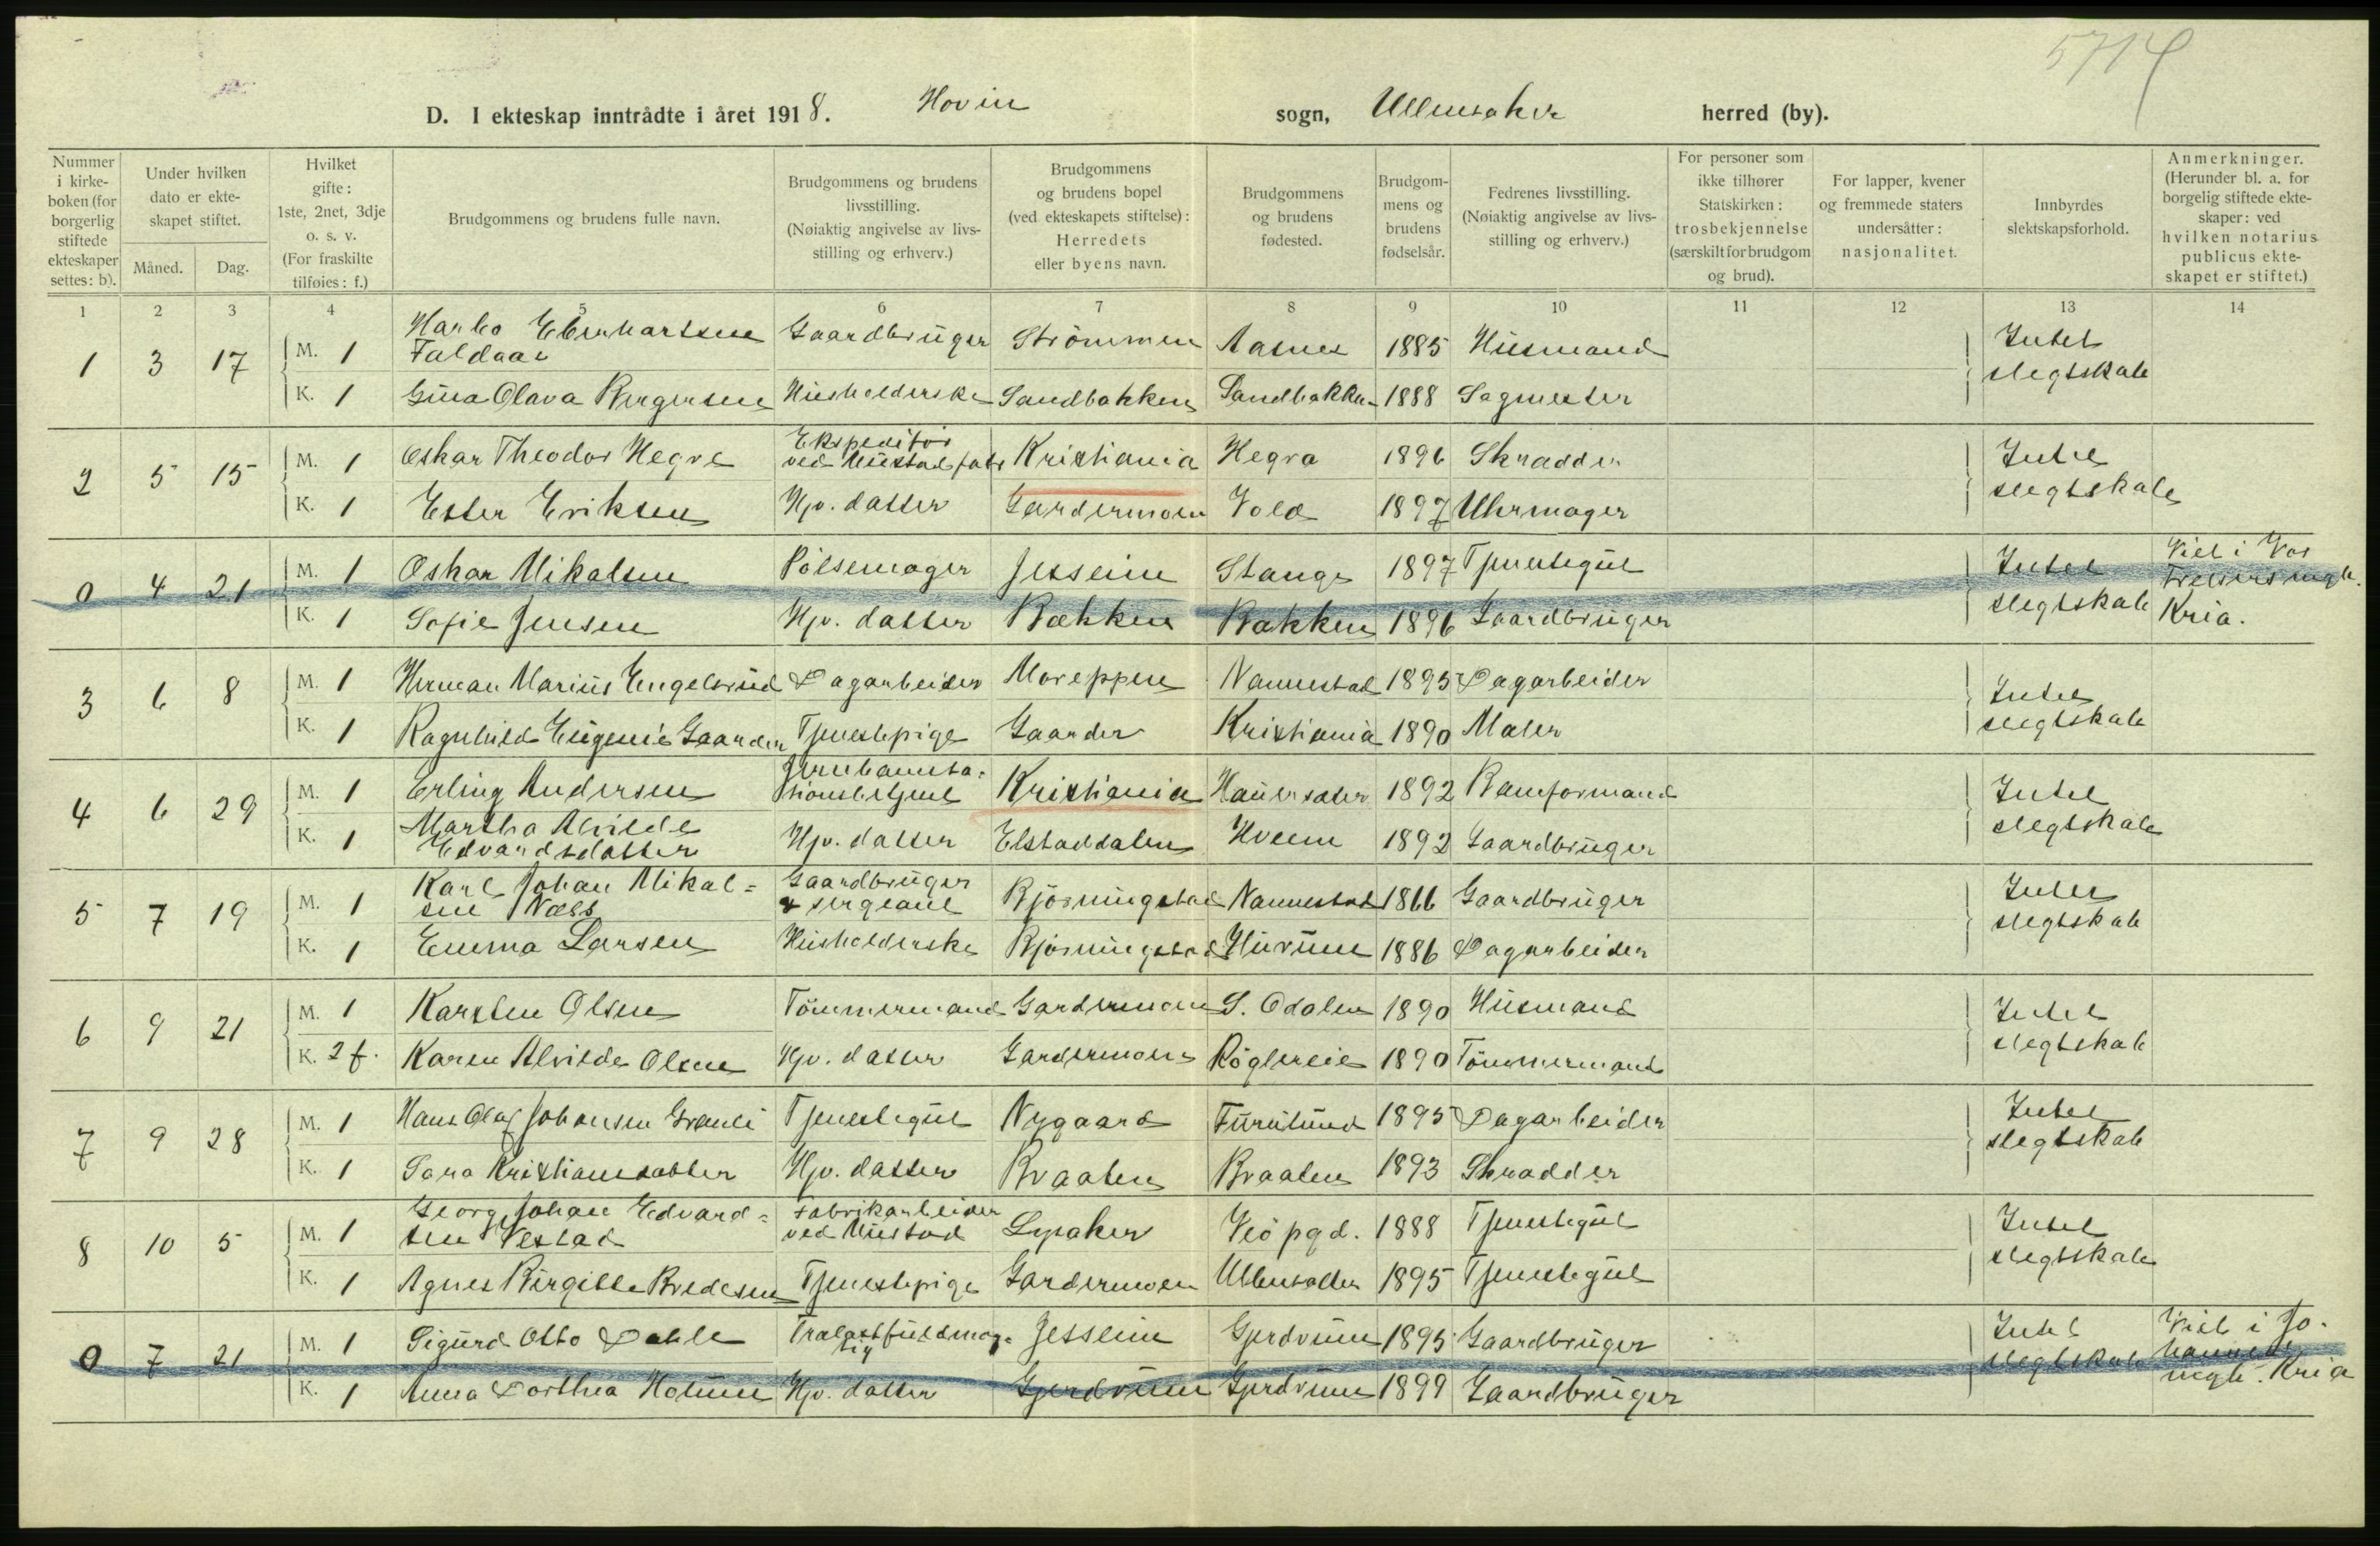 5714
D. I ekteskap inntrådte i året 1918. Hovin sogn, Ullensaker herred (by).
Nummer i kirke-boken (for borgerlig stiftede ekteskaper settes: b).
Under hvilken dato er ekte-skapet stiftet.
Måned. Dag.
Hvilket gifte: 1ste, 2net, 3dje o. s. v. (For fraskilte tilføies: f.)
Brudgommens og brudens fulle navn.
Brudgommens og brudens livsstilling. (Nøiaktig angivelse av livs-stilling og erhverv.)
Brudgommens og brudens bopel (ved ekteskapets stiftelse): Herredets eller byens navn.
Brudgommens og brudens fødested.
Brudgom-mens og brudens fødselsår.
Fedrenes livsstilling. (Nøiaktig angivelse av livs-stilling og erhverv.)
For personer som ikke tilhører Statskirken: trosbekjennelse (særskilt for brudgom og brud).
For lapper, kvener og fremmede staters undersåtter: nasjonalitet.
Innbyrdes slektskapsforhold.
Anmerkninger. (Herunder bl. a. for borgelig stiftede ekte-skaper: ved hvilken notarius publicus ekte-skapet er stiftet.)
1 2 3 4 5 6 7 8 9 10 11 12 13 14
1 3 17 M. 1 Faldaas Gaardbrüger Strömmen Aasnes 1885 Hüsmand Intet slegtskab
K. 1 Gina Olava Bergersen Hüsholderske Sandbakken Sandbakken 1888 Sagmester
2 5 15 M. 1 Oskar Theodor Hegre Ekspeditör ved Müstad fabr Kristiania Hegra 1896 Skradder Intet slegtskab
K. 1 Ester Eriksen Hjv. datter Gardermoen Vold 1897 Uhrmager
0 4 21 M. 1 Oskar Mikalsen Pölsemager Jesseim Stange 1897 Tjenestegüt Intet slegtskab Viet i Vor Frelsers mgh. Kria.
K. 1 Sofie Jensen Hjv. datter Bakken Bakken 1896 Gaardbrüger
3 6 8 M. 1 Herman Mariüs Engelsrüd Dagarbeider Moreppen Nannestad 1895 Dagarbeider Intet slegtskab
K. 1 Ragnhild Eügenie Gaarder Tjenestepige Gaarder Kristiania 1890 Maler
4 6 29 M. 1 Erling Andersen Jernbanesta-tionsbetjent Kristiania Haüersæter 1892 Baneformand Intet slegtskab
K. 1 Martha Alvilde Edvardsdatter Hjv. datter Elstaddalen Hveem 1892 Gaardbrüger
5 7 19 M. 1 Karl Johan Mikal=sen Næss Gaardbrüger & sergeant Björningstad Nannestad 1866 Gaardbrüger Intet slegtskab
K. 1 Emma Larsen Hüsholderske Björningstad Hürüm 1886 Dagarbeider
6 9 21 M. 1 Karsten Olsen Tömmermand Gardermoen S. Odalen 1890 Hüsmand Intet slegtskab
K. 2 f. Karen Alvilde Olsen Hjv. datter Gardermoen Röglereie 1890 Tömmermand
7 9 28 M. 1 Hans Olaf Johansen Granli Tjenestegüt Nygaard Fürülünd 1895 Dagarbeider Intet slegtskab
K. 1 Sara Kristiansdatter Hjv. datter Braaten Braaten 1893 Skradder
8 10 5 M. 1 Georg Johan Edvard=sen Vestad Fabrikarbeider ved Müstad Lysaker Veö pgd. 1888 Tjenestegüt Intet slegtskab
K. 1 Agnes Birgitte Bredesen Tjenestepige Gardermoen Ullensaker 1895 Tjenestegüt
0 7 21 M. 1 Sigürd Otto Dahle Trælastfüldmæg-tig Jesseim Gjerdrüm 1895 Gaardbrüger Intet slegtskab Viet i Jo-hannes mgh. Kria
K. 1 Anna Dorthea Holüm Hjv. datter Gjerdrüm Gjerdrüm 1899 Gaardbrüger